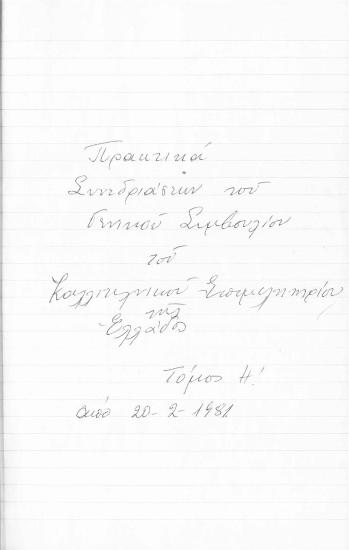 Πρακτικά
Συνεδριάσεων τού
Γενικού Συμβουλίου
τού
Καλλιτεχνικού Επιμελητηρίου
της
Ελλάδος
Τόμος Η!
από 20-2-1981